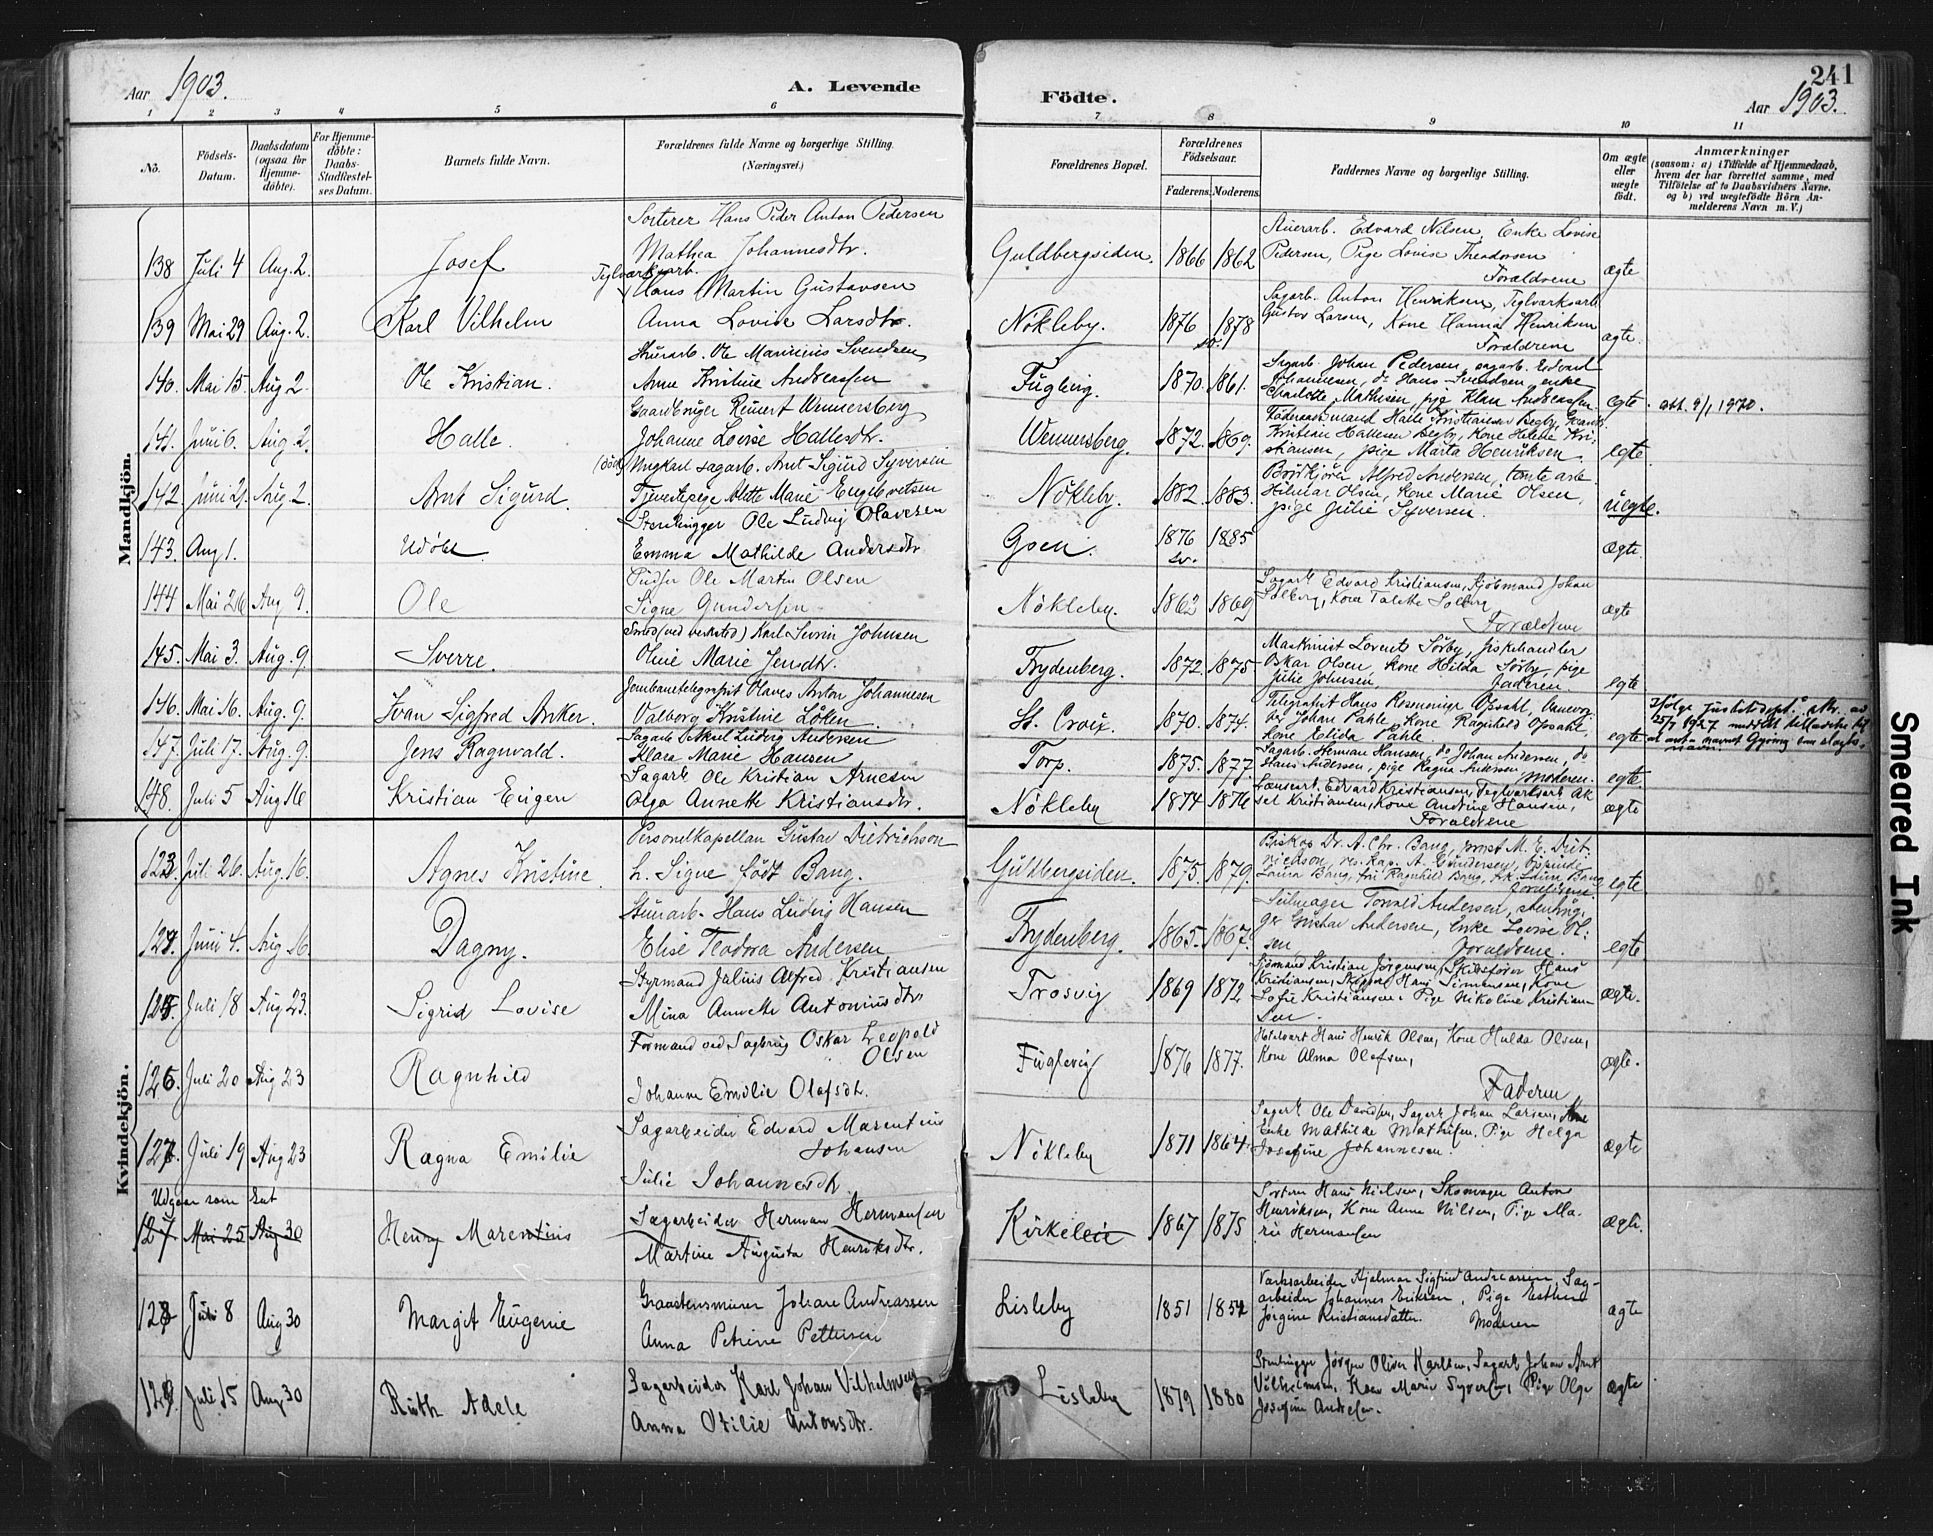 Aar 1903.
A. Levende
Födte.
241
Aar 1903.
1 2 3 4 5 6 7 8 9 10 11
No.
Födsels-Datum.
Daabsdatum (ogsaa for Hjemme-döbte).
For Hjemme-döbte: Daabs-Stadfæstel-ses Datum.
Barnets fulde Navn.
Forældrenes fulde Navne og borgerlige Stilling. (Næringsvei.)
Forældrenes Bopæl.
Forældrenes Födselsaar.
Faderens. Moderens.
Faddernes Navne og borgerlige Stilling.
Om ægte eller uægte födt.
Anmærkninger
(saasom: a) i Tilfælde af Hjemmedaab, hvem der har forrettet samme, med Tilföielse af to Daabsvidners Navne, og b) ved uægtefödte Börn An-melderens Navn m. V.)
Mandkjön.
Sorterer Hans Peder Anton Pedersen
138 Juli 4 Aug. 2. Josef Mathea Johannesdtr. Guldbergsiden. 1866 1862 Stuerarb. Edvard Nilsen, Enke Lovise Pedersen, Pige Lovise Theodorsen Forældrene ægte
Teglværksarb. Hans Martin Gustavsen
139 Mai 29 Aug. 2. Karl Vilhelm Anna Lovise Larsdtr. Nökleby. 1876 sv. 1878 Sagarb. Anton Henriksen, Teglværksarb. Gustav Larsen, Kone Hanna Henriksen Forældrene ægte.
Stuerarb. Ole Marinius Svendsen
140. Mai 15. Aug 2. Ole Kristian. Anne Kristine Andreassen Fuglevig. 1870. 1861. Sagarb. Johan Pedersen, sagarb. Edvard Johannesen, do Hans Svendsen, enke Charlotte Mathisen, pige Klara Andreassen. egte. att. 9/1 1970.
Gaardbruger Reinert Wennersberg
141. Juni 6. Aug. 2. Halle. Johanne Lovise Hallesdtr. Wennersberg. 1872. 1869. Föderaadsmand Halle Kristiansen Begby, Kristian Hallesen Begby, Kone Helene Kristiansen, pige Marta Henriksen. egte.
(död) Ungkarl sagarb. Arnt Sigurd Syversen
142 Juni 21. Aug. 2. Arnt Sigurd. Tjenestepige Alette Marie Engebretsen Nökleby. 1882. 1883. Alfred Andersen, Hilmar Olsen, Kone Marie Olsen, pige Julie Syversen. uegte.
Stenhugger Ole Ludvig Olavesen
143. Aug 1. Udöbt Emma Mathilde Andersdtr. 1876 sv. 1885 ægte.
Pudser Ole Martin Olsen
144 Mai 26 Aug 9. Ole Signe Gundersen Nökleby. 1862 1869 Sagarb. Edvard Kristiansen, Sjömand Johan Solberg, Kone Talette Solberg Forældrene ægte
Smed (ved verksted) Karl Severin Johnsen
145. Mai 3. Aug. 9. Sverre. Oline Marie Jensdtr. Frydenberg. 1872. 1875 Maskinist Lorents Sörby, fiskehandler Oskar Olsen, Kone Hilda Sörby, pige Julie Johnsen, Faderen egte
Jernbanetelegrafist Olaves Anton Johannesen
146. Mai 16. Aug. 9. Ivan Sigfred Anker. Valborg Kristine Löken St. Croix. 1870. 1874. Telegrafist Hans Rosenvinge Opsahl, Johan Pahle, Kone Ragnhild Opsahl, Kone Elida Pahle egte Ifölge Justitsdept. skr. av 25/7 1927 meddelt tilladelse til at anta navnet som slegtsnavn.
Sagarb. Aksel Ludvig Andersen
147. Juli 17. Aug. 9. Jens Ragnvald. Klara Marie Hansen Torp. 1875. 1877. Sagarb. Herman Hansen, do Johan Andersen, do Hans Andersen, pige Ragna Andersen, Moderen. egte.
Sagarb. Ole Kristian Arnesen
148. Juli 5 Aug 16 Kristian Eugen Olga Annette Kristiansdtr. Nökleby 1874 1876 Edvard Kristiansen, Teglverksarb. Aksel Kristiansen, Kone Andrine Hansen, Forældrene ægte
Kvindekjön.
Personelkapellan Gustav Dietrichson
123. Juli 26. Aug. 16. Agnes Kristine. h. Signe född Bang. Guldbergsiden. 1875. 1879. Biskop Dr. A. Chr. Bang, provst M. E. Dietrichson, res. kap. A. Gundersen, Laura Bang, frk Ragnhild Bang, frk. Laura Bang Forældrene. egte.
Stuerarb. Hans Ludvig Hansen
124. Juni 4. Aug 16. Dagny. Elise Teodora Andersen Frydenberg. 1865. 1867. Seilmager Torvald Andersen, stenhugger Gustav Andersen, Enke Lovise Olsen Forældrene. egte
Styrmand Julius Alfred Kristiansen
125. Juli 18 Aug 23. Sigrid Lovise Mina Annette Antoniusdtr. Trosvig 1869 1872 Sjömand Kristian Jörgensen, Skibsförer Hans Kristiansen, Skipper Hans Simensen, Kone Sofie Kristiansen, Pige Nikoline Kristiansen. ægte.
Formand ved Sagbrug Oskar Leopold Olsen
126. Juli 20 Aug 23 Ragnhild Johanne Emilie Olafsdtr. Fuglevig 1876 1877. Hans Henrik Olsen, Kone Hulda Olsen, Kone Alma Olafsen, Faderen ægte.
Sagarbeider Edvard Marentius Johansen
127. Juli 19 Aug 23 Ragna Emilie Julie Johannesdtr. Nökleby 1871 1864. Sagarb. Ole Davidsen, Sagarb. Johan Larsen, Enke Mathilde Mathisen, Pige Helga Josefine Johannesen. ægte
Udgaar som Gut
127 Mai 25 Aug 30 Henry Marentius Sagarbeider Herman Hermansen Martine Augusta Henriksdtr. Kirkeleie 1867 1875 Hans Nielsen, Skomager Anton Henriksen, Kone Anne Nilsen, Pige Marie Hermansen ægte.
128 Juli 8 Aug 30 Margit Eugenie Graastensmurer Johan Andreassen Anna Petrine Pettersen Lisleby 1851 1854 Værksarbeider Hjalmar Sigfrid Andreassen, Sagarbeider Johannes Eriksen, Pige Esther Jörgine Kristiansdatter. Moderen ægte
129 Juli 15 Aug 30 Ruth Adele Sagarbeider Karl Johan Vilhelmsen Anna Otilie Antonsdtr. Lisleby 1879 1880 Stenhugger Jörgen Oliver Karlsen, Sagarb. Johan Arnt Vilhelmsen, Kone Marie Syversen, Pige Olga Josefine Andresen. ægte
Smeared Ink